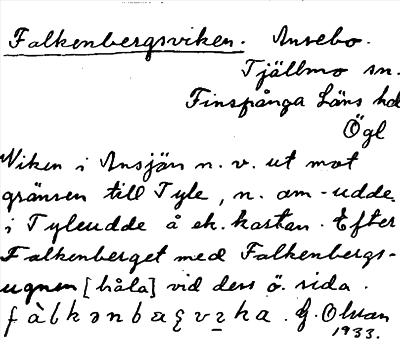 Falkenbergsviken. Ansebo.
Tjällmo sn.
Finspånga Läns hd
Ögl
Viken i Ansjön n. v. ut mot
gränsen till Tyle, n. om -udde
i Tyleudde å ek. kartan. Efter
Falkenberget med Falkenbergs-
ugnen [håla] vid dess ö. sida.
fàlkənbæ vika. G. Olsan
1933.